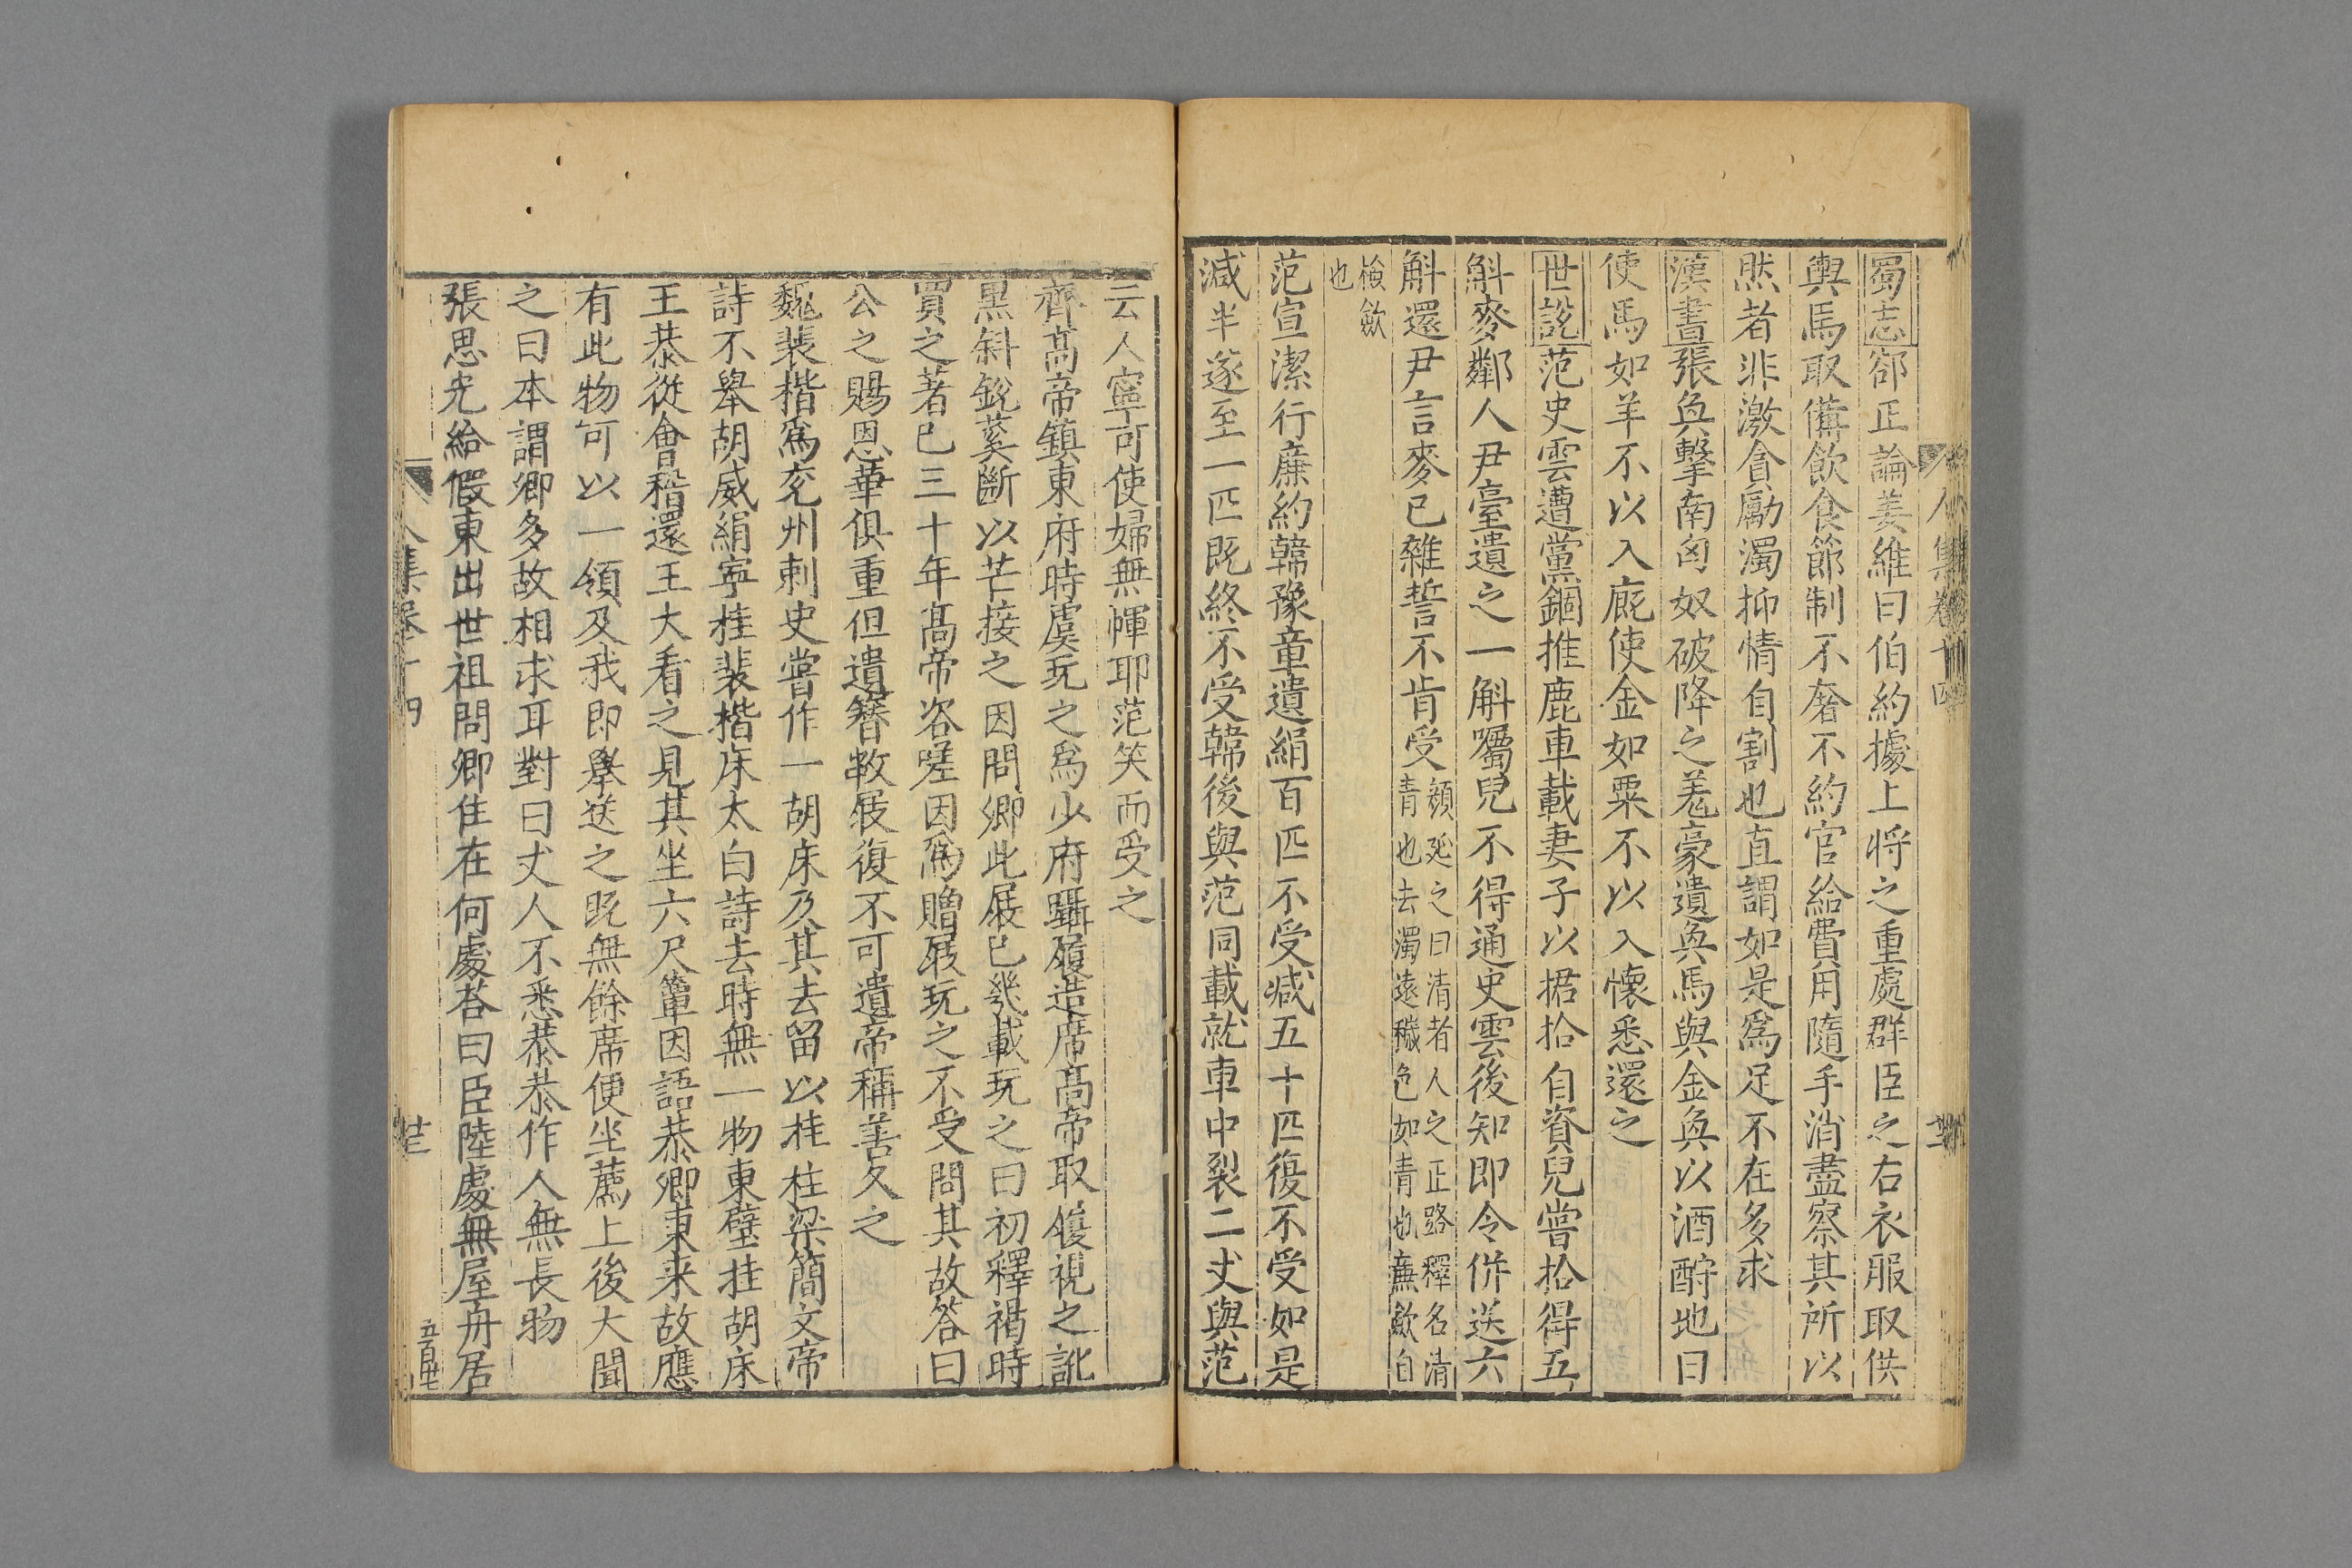 蜀志郤正論姜維曰伯約據上将之重處群臣之右衣服取供
輿馬取備飲食節制不奢不約官給費用隨手消盡察其所以
然者非激貪勵濁抑情自割也直謂如是爲足不在多求
漢書張奐擊南匈奴破降之羌豪遺奐馬與金奐以酒酹地曰
使馬如羊不以入廐使金如粟不以入懷悉還之
世說范史雲遭黨錮推鹿車載妻子以捃拾自資兒嘗拾得五
斛麥鄰人尹臺遺之一斛囑兒不得通史雲後知即令併送六
斛還尹言麥已雜誓不肯受
顏延之曰清者人之正路釋名清
青也去濁遠穢色如青也廉歛自
檢歛
也
范宣潔行廉約韓豫章遺絹百匹不受減五十匹復不受如是
減半遂至一匹既終不受韓後與范同載就車中裂二丈與范
人集卷十四
云人寧可使婦無幝耶范笑而受之
齊高帝鎮東府時虞玩之爲少府躡履造席高帝取履視之訛
黑斜銳蒵斷以芒接之因問卿此屐已幾載玩之曰初釋褐時
買之著已三十年高帝咨嗟因爲贈屐玩之不受問其故答曰
公之賜恩華俱重但遺簪敝屐復不可遺帝稱善久之
魏裴楷爲兖州刺史嘗作一胡床及其去留以挂柱梁簡文帝
詩不舉胡威絹寧挂裴楷床太白詩去時無一物東壁挂胡床
王恭從會稽還王大看之見其坐六尺簟因語恭卿東来故應
有此物可以一領及我即舉送之既無餘席便坐薦上後大聞
之曰本謂卿多故相求耳對曰丈人不悉恭恭作人無長物
張思光給假東出世祖問卿住在何處荅曰臣陸處無屋舟居
人集卷十四